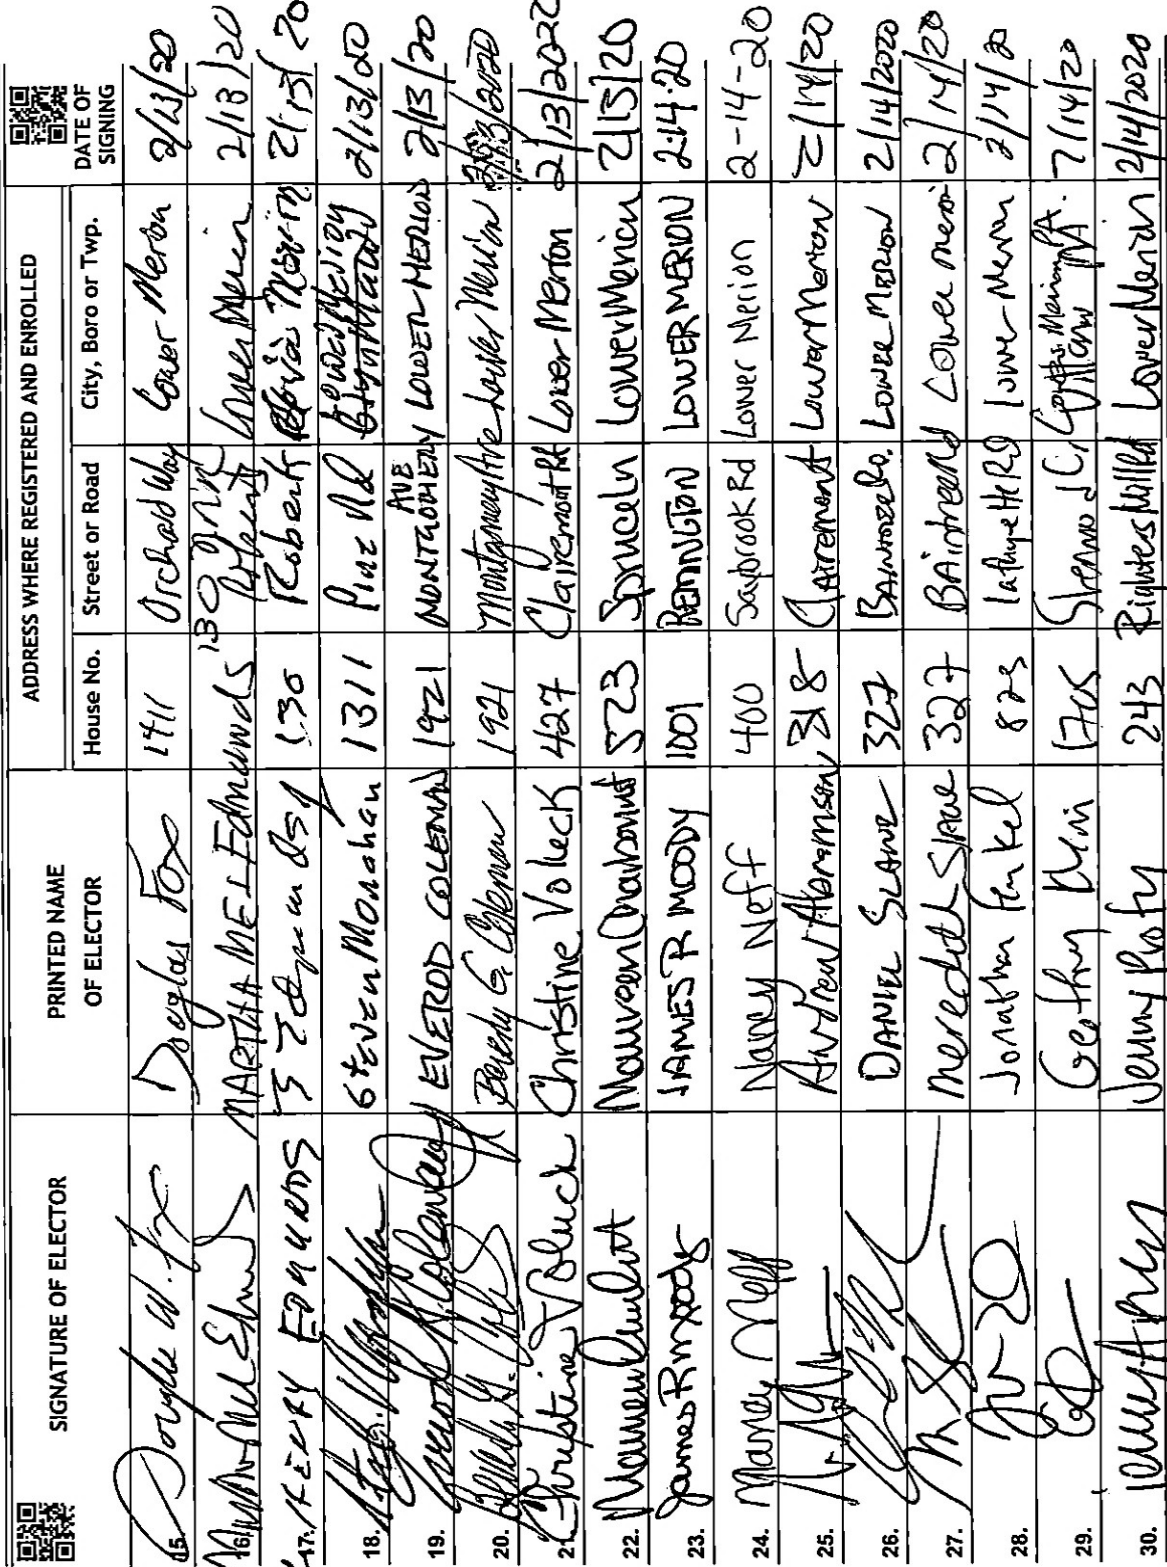 SIGNATURE OF ELECTOR PRINTED NAME OF ELECTOR ADDRESS WHERE REGISTERED AND ENROLLED DATE OF SIGNING
House No. Street or Road City, Boro or Twp.
15. Douglas W. Fox Douglas Fox 1411 Orchard Way Lower Merion 2/13/20
16. MARTHA MEL Edmunds 130 Roberts Lower Merion 2/13/20
17. HENRY EDMUNDS 130 Robert 2/13/20
18. Steven Monahan 1311 Pine Rd Lower Merion 2/13/20
19. EVEROD COLEMAN 1921 MONTGOMERY AVE LOWER MERION 2/13/20
20. Beverly G. Coleman 1921 Montgomery Ave Lower Merion
21. Christine Voluck Christine Voluck 427 Clairemont Rd Lower Merion 2/13/202
22. Maureen 523 Spruce Ln Lower Merion 2/13/20
23. James R Moody JAMES R MOODY 1001 REMINGTON LOWER MERION 2.14.20
24. Nancy Neff Nancy Neff 400 Saybrook Rd Lower Merion 2-14-20
25. Andrew Abramson 318 Clairemont Lower Merion 2/14/20
26. DANIEL SLANE 327 BAINTREE RD. LOWER MERION 2/14/2020
27. Meredith Slane 327 BAintree Rd Lower merion 2/14/20
28. Jonathan 823 Lafayette RD Lower Merion 2/14/20
29. Geoffrey 1705 PA. 2/14/20
30. Jenny 243 Rightes Mill Rd Lower Merion 2/14/2020